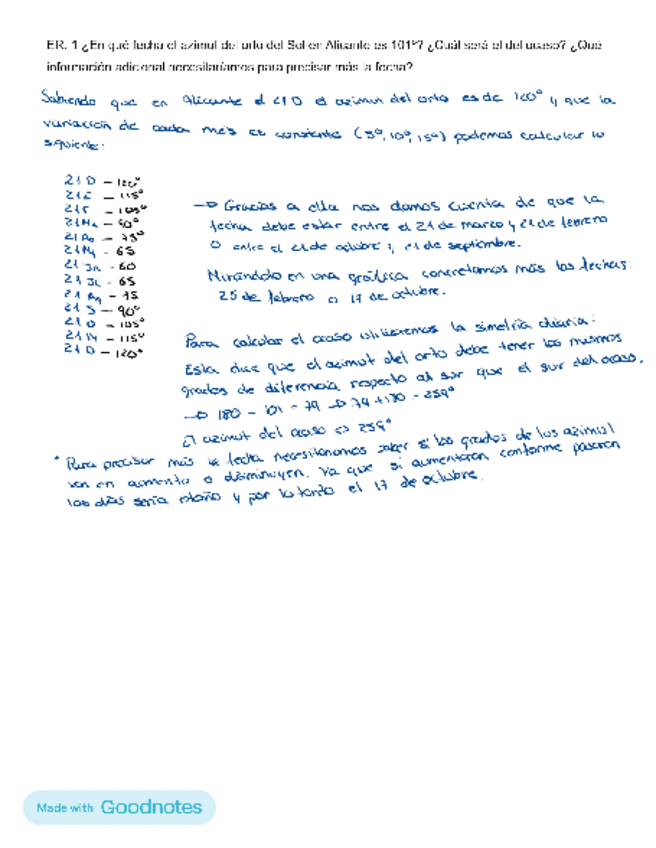 ER. 1 ¿En qué fecha el azimut del orto del Sol en Alicante es 101º? ¿Cuál será el del ocaso? ¿Qué
información adicional necesitaríamos para precisar más la fecha?
Sabiendo que en Alicante el 21 D el azimut del orto es de 120º y que la
variación de cada mes es constante (5º, 10º, 15º) podemos calcular lo
siguiente:
21 D - 120º
21 E - 115º
21 F - 105º
21 Ma - 90º
21 Ab - 75º
21 My - 65
21 Jn - 60
21 JL - 65
21 Ag - 75
21 S - 90º
21 O - 105º
21 N - 115º
21 D - 120º
→ Gracias a ello nos damos cuenta de que la
fecha debe estar entre el 21 de marzo y 21 de febrero
o entre el 21 de octubre y 21 de septiembre.
Mirándolo en una gráfica concretamos más las fechas:
25 de febrero o 17 de octubre.
Para calcular el ocaso utilizaremos la simetría diaria:
Esta dice que el azimut del orto debe tener los mismos
grados de diferencia respecto al sur que el sur del ocaso.
→ 180 - 101 = 79 → 79 + 180 = 259º
El azimut del ocaso es 259º
* Para precisar más la fecha necesitaríamos saber si los grados de los azimut
van en aumento o disminuyen. Ya que si aumentaran conforme pasaran
los días sería otoño y por lo tanto el 17 de octubre.
Made with Goodnotes